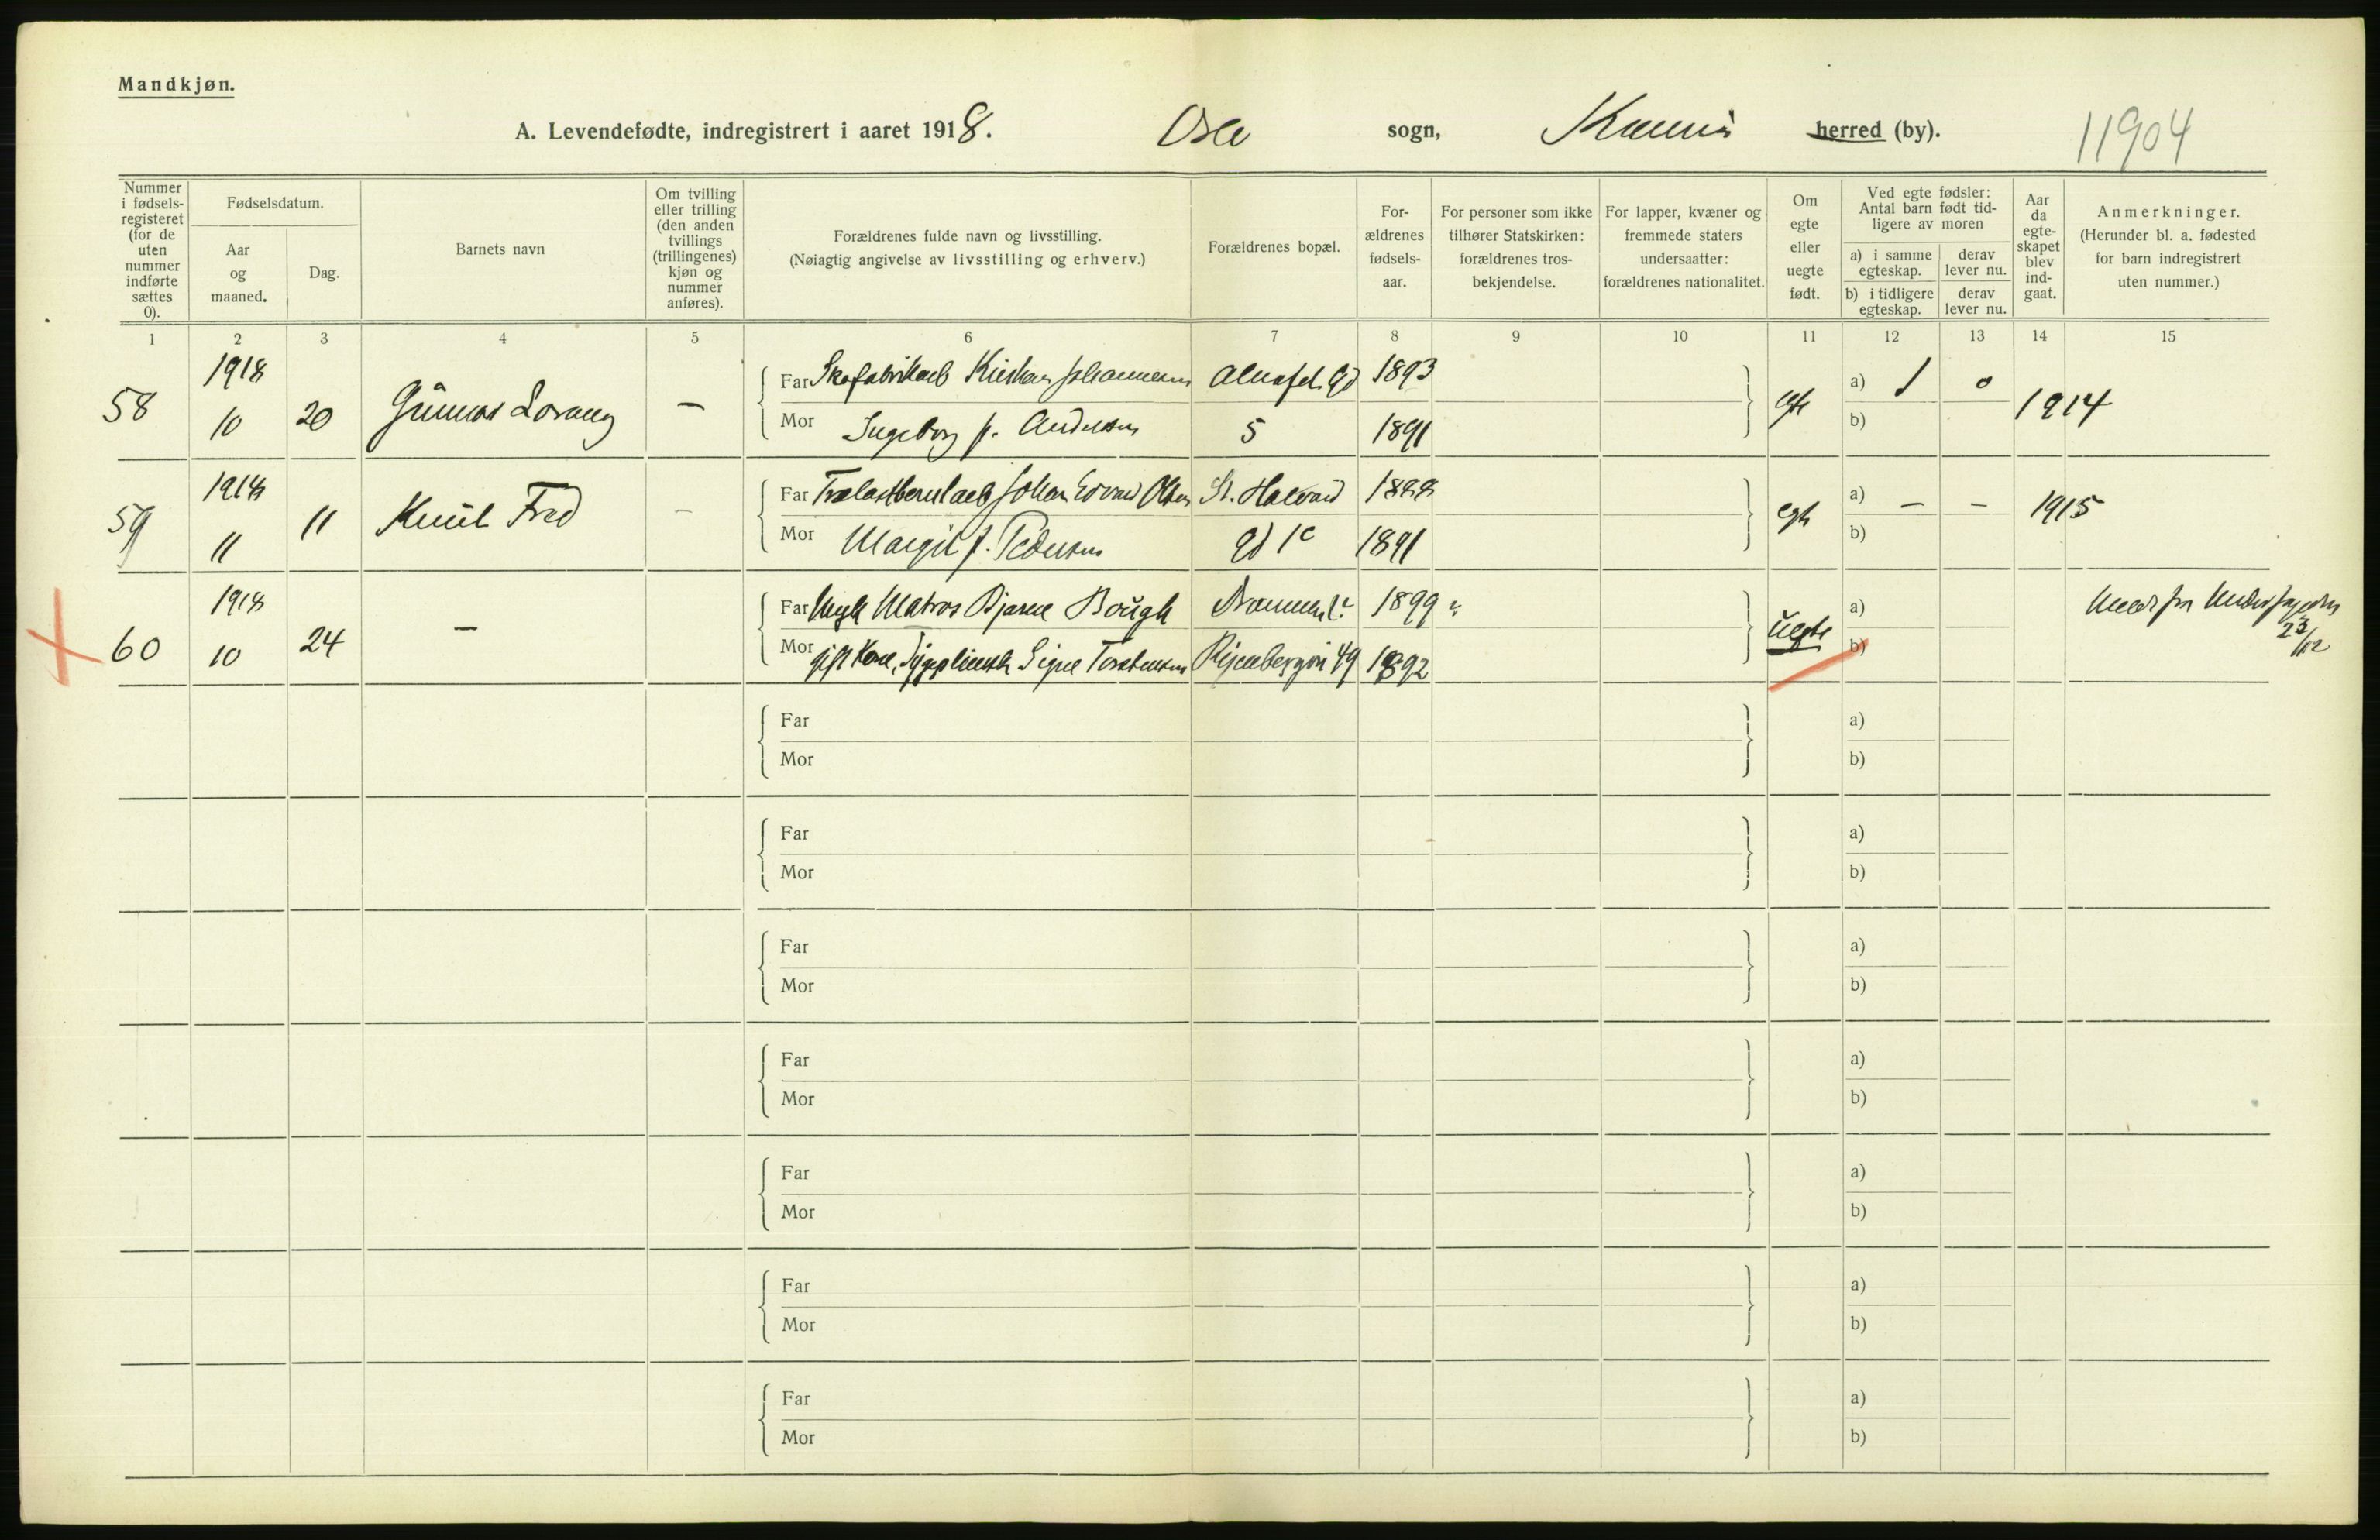 Mandkjøn.
A. Levendefødte, indregistrert i aaret 1918. Oslo sogn, herred (by). 11904
Nummer i fødsels-registeret (for de uten nummer indførte sættes 0).
Fødselsdatum.
Aar og maaned.
Dag.
Barnets navn
Om tvilling eller trilling (den anden tvillings (trillingenes) kjøn og nummer anføres).
Forældrenes fulde navn og livsstilling.
(Nøiagtig angivelse av livsstilling og erhverv.)
Forældrenes bopæl.
For-ældrenes fødsels-aar.
For personer som ikke tilhører Statskirken: forældrenes tros-bekjendelse.
For lapper, kvæner og fremmede staters undersaatter: forældrenes nationalitet.
Om egte eller uegte født.
Ved egte fødsler: Antal barn født tid-ligere av moren
a) i samme egteskap.
derav lever nu.
b) i tidligere egteskap.
derav lever nu.
Aar da egte-skapet blev ind-gaat.
Anmerkninger.
(Herunder bl. a. fødested for barn indregistrert uten nummer.)
1 2 3 4 5 6 7 8 9 10 11 12 13 14 15
58 1918 10 20 Gunnar Lorang —
Far Skofabrikarb Kristian Johannesen 1893
Mor Ingeborg f. Andersen 5 1891
egte a) 1 0 1914
b)
59 1918 11 11 Knut Fred —
Far Johan Edvard Olsen St. Halvard
Mor Margit f. Pedersen gd 1c 1891
egte a) — — 1915
b)
60 1918 10 24 —
Far Ungk Matros Bjarne Bough 1899
Mor gift Kone, Signe Torstensen 49 1892
uegte a)
b)
23/12
Far a)
Mor b)
Far a)
Mor b)
Far a)
Mor b)
Far a)
Mor b)
Far a)
Mor b)
Far a)
Mor b)
Far a)
Mor b)